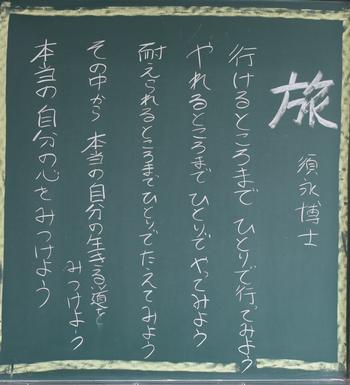 旅
須永博士
行けるところまで ひとりで行ってみよう
やれるところまで ひとりで やってみよう
耐えられるところまで ひとりで たえてみよう
その中から 本当の自分の生きる道を
みつけよう
本当の自分の心をみつけよう